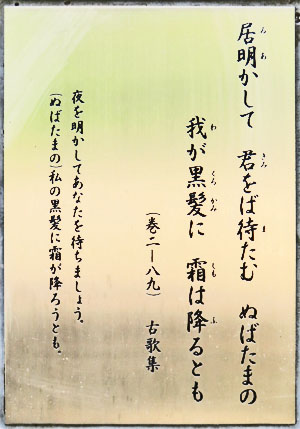 居明かして 君をば待たむ ぬばたまの
我が黒髪に 霜は降るとも
(巻二―八九) 古歌集
夜を明かしてあなたを待ちましょう。
(ぬばたまの)私の黒髪に霜が降ろうとも。